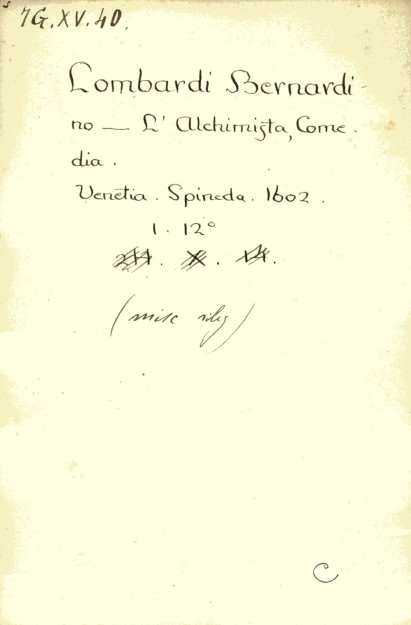 7G.XV.40.
Lombardi Bernardi-
no — L' Alchimista, Come-
dia.
Venetia. Spineda. 1602.
1. 12°
(misc rileg)
C